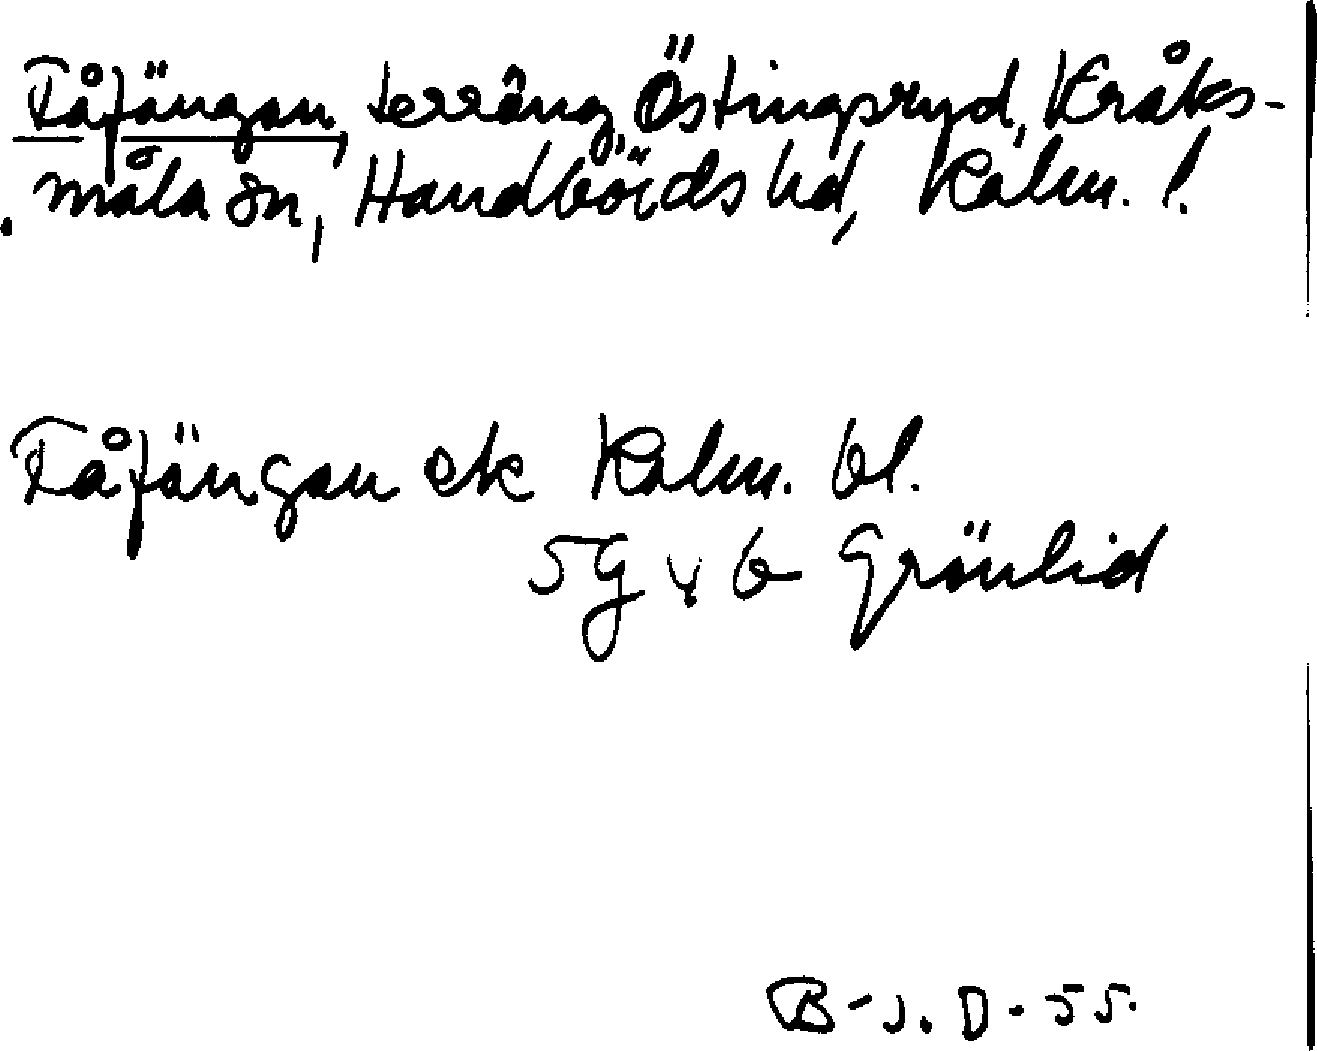 Fåfängan, terräng, Östingsryd, Kråks-
måla sn, Handbörds hd, Kalm. l.
Fåfängan ek Kalm. bl.
5G v b Grönlid
B-J. D-55.